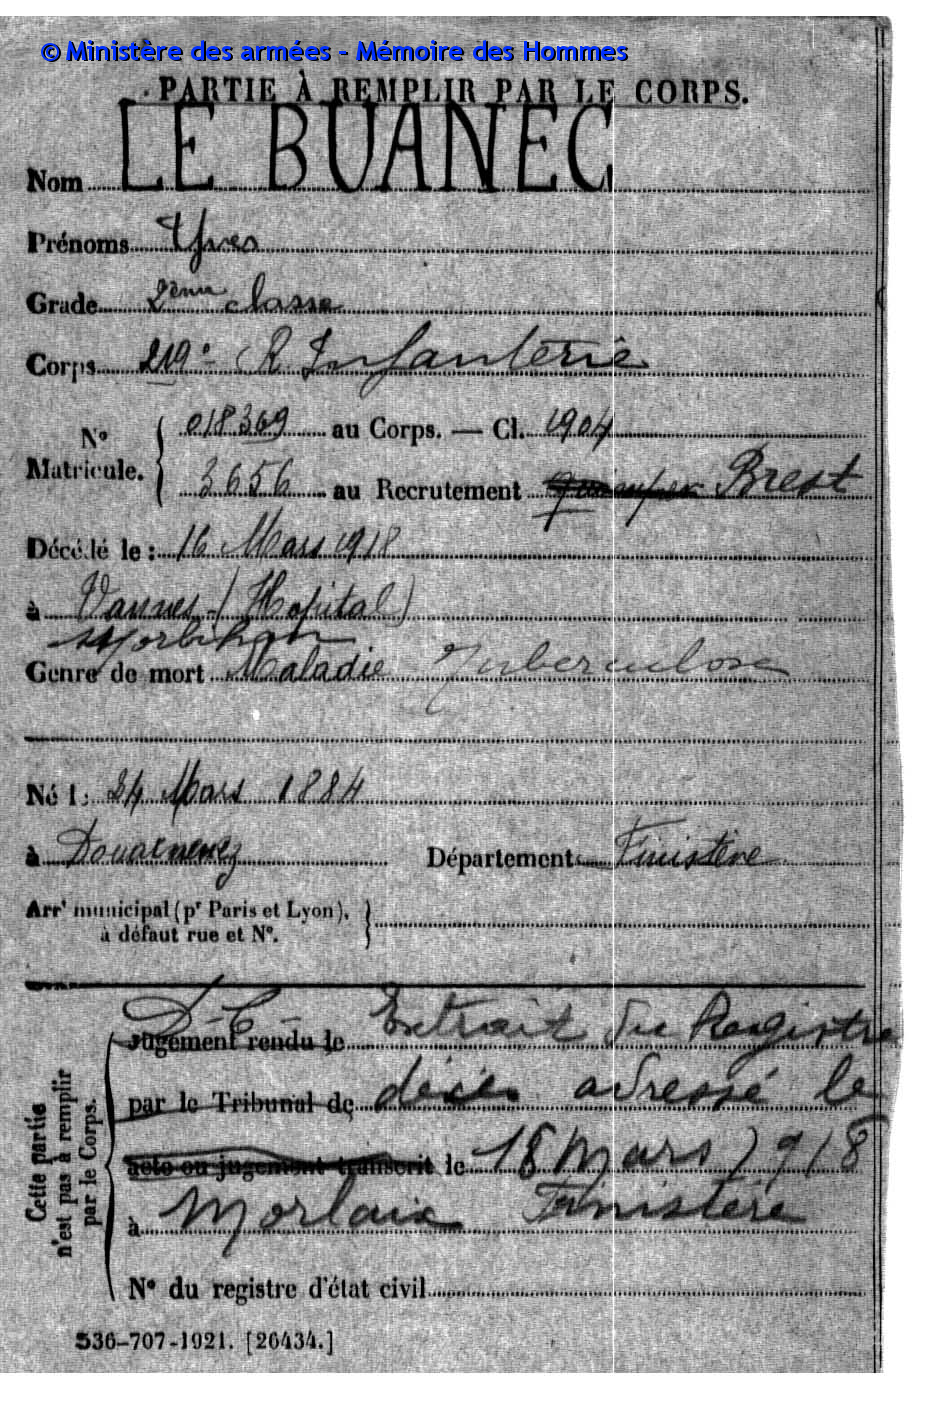 © Ministère des armées - Mémoire des Hommes
PARTIE À REMPLIR PAR LE CORPS.
Nom LE BUANEC
Prénoms Yves
Grade 2ème classe
Corps 219e R Infanterie
Nº Matricule. 018369 au Corps. — Cl. 1904
3656 au Recrutement Quimper Brest
Décédé le : 16 Mars 1918
à Vannes (Hopital)
Morbihan
Genre de mort Maladie Tuberculose
Né le 24 Mars 1884
à Douarnenez Département Finistère
Arrt municipal (pr Paris et Lyon),
à défaut rue et Nº.
Cette partie
n'est pas à remplir
par le Corps.
D-C- Extrait du Registre
Jugement rendu le
par le Tribunal de décès adressé le
acte ou jugement transcrit le 18 Mars 1918
à Morlaix Finistère
Nº du registre d'état civil
536-707-1921. [26434.]